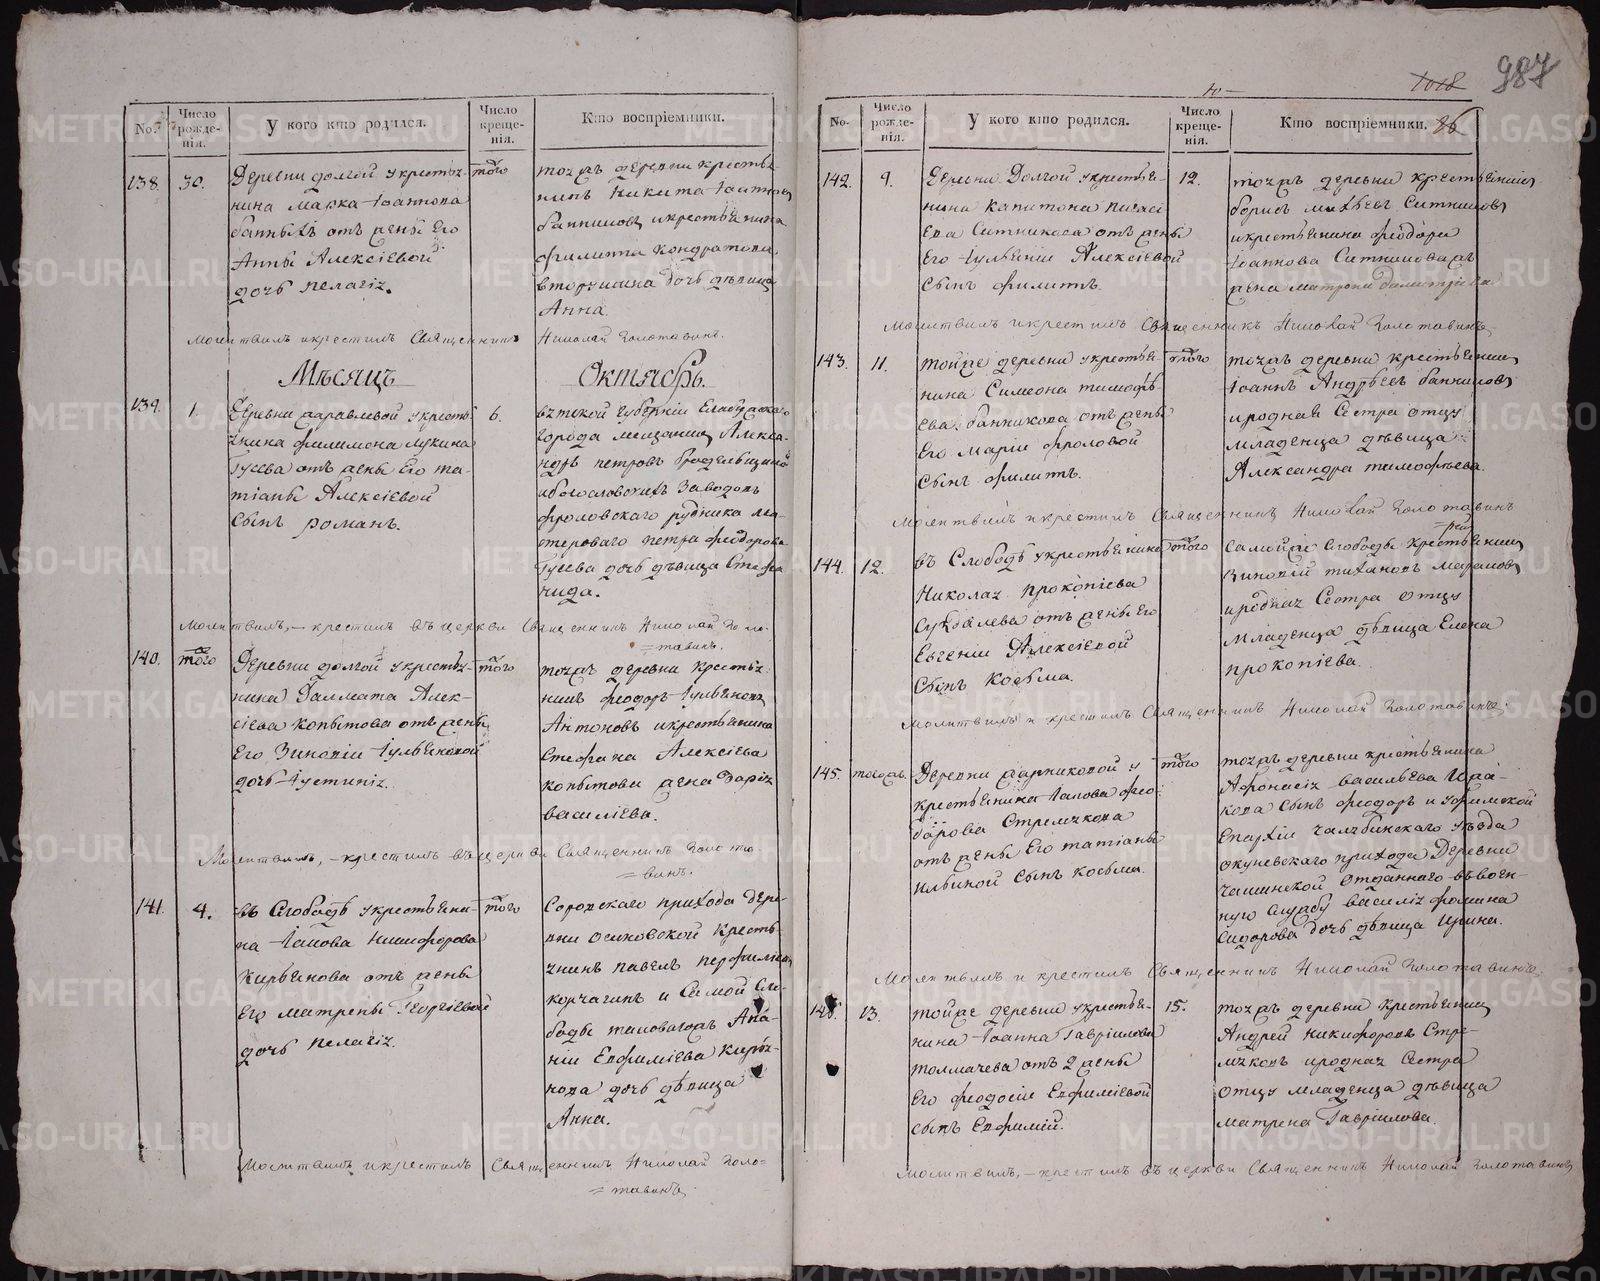 987
1018
No.
Число рожде-нія.
У кого кто родился.
Число креще-нія.
Кто воспріемники.
138.
30.
Деревни Долгой у крестья-
нина Марка Іоаннова
банныхъ отъ жены Его
Анны Алексіевой
дочь Пелагія.
того
тояжъ деревни крестья-
нинъ Никита
и крестьянина
Филиппа Кондратова
дочь дѣвица
Анна.
Молитвилъ и крестилъ Священникъ Николай Золотавинъ.
Мѣсяцъ
Октябрь.
139.
1.
Деревни Журавлевой у кресть-
янина Филимона Лукина
Гусева отъ жены Его Та-
тіаны Алексіевой
сынъ Романъ.
6.
Вятской губерніи Елабужскаго
города мещанинъ Алекса-
ндръ Петровъ
и богословскихъ заводовъ
фроловскаго рудника ма-
стероваго Петра Феодорова
Гусева дочь дѣвица Стефа-
нида.
Молитвилъ, - крестилъ въ церкви Священникъ Николай Золо-
=тавинъ.
140.
того
Деревни Долгой у крестья-
нина Далмата Алек-
сіева Копытова отъ жены
Его Зиновіи Іульяновой
дочь Іустинія.
того
тояжъ деревни крестья-
нинъ Феодоръ Іульяновъ
Антоновъ и крестьянина
Стефана Алексіева
Копытова жена Дарія
Василіева.
Молитвилъ, - крестилъ въ церкви Священникъ Золота-
=винъ.
141.
4.
въ Слободѣ у крестьяни-
на Іакова Никифорова
Кирьянова отъ жены
Его Матрены Георгіевой
дочь Пелагія.
того
прихода Дере-
вни Осиновской кресть-
янинъ Павелъ Перфильевъ
Корчагинъ и Самой Сло-
боды таковагожъ Ана-
ніи Евфиміева Кирья-
нова дочь дѣвица
Анна.
Молитвилъ и крестилъ Священникъ Николай Золо=
=тавинъ.
No.
Число рожде-нія.
У кого кто родился.
Число креще-нія.
Кто воспріемники.
86
142.
9.
Деревни Долгой у крестья-
нина Капитона
Ситникова отъ жены
Его Іульяніи Алексіевой
сынъ Филиппъ.
12.
тояжъ деревни крестьянинъ
Борисъ Ситниковъ
и крестьянина Феодора
Іоаннова Ситникова
жена Матрона Димитріева
Молитвилъ и крестилъ Священникъ Николай Золотавинъ.
143.
11.
тойже деревни у крестья-
нина Симеона Тимофѣ-
ева Банникова отъ жены
Его Маріи Фроловой
сынъ Филиппъ.
того
тояжъ деревни крестьянинъ
Іоаннъ Андреевъ Банниковъ
и родная сестра отцу
младенца дѣвица
Александра Тимофѣева.
Молитвилъ и крестилъ Священникъ Николай Золотавинъ
144.
12.
въ Слободѣ у крестьянина
Николая Прокопіева
отъ жены Его
Евгеніи Алексіевой
сынъ Косьма.
того
Самойже Слободы крестьянинъ
Зиновій Тихановъ
и родная сестра отцу
младенца дѣвица Елена
Прокопіева.
Молитвилъ и крестилъ Священникъ Николай Золотавинъ.
145.
тогожъ.
Деревни у
крестьянина Іакова Фео-
дорова Стрелчкова
отъ жены Его Татіаны
Ильиной сынъ Косьма.
того
тояжъ деревни крестьянина
Афонасія Василіева
сынъ Феодоръ и Уфимской
Епархіи Челябинскаго уѣзда
окуневскаго прихода Деревни
Чашинской отданнаго въ воен-
ную службу Василія Фомина
Сидорова дочь дѣвица Ирина.
Молитвилъ и крестилъ Священникъ Николай Золотавинъ.
146.
13.
тойже деревни у крестья-
нина Іоанна Гаврилова
Толмачева отъ 2 жены
Его Феодосіи Евфиміевой
сынъ Евфимій.
15.
тояжъ деревни крестьянинъ
Андрей Никифоровъ Стре-
лчковъ и родная сестра
отцу младенца дѣвица
Матрена Гаврилова.
Молитвилъ, - крестилъ въ церкви Священникъ Николай Золотавинъ